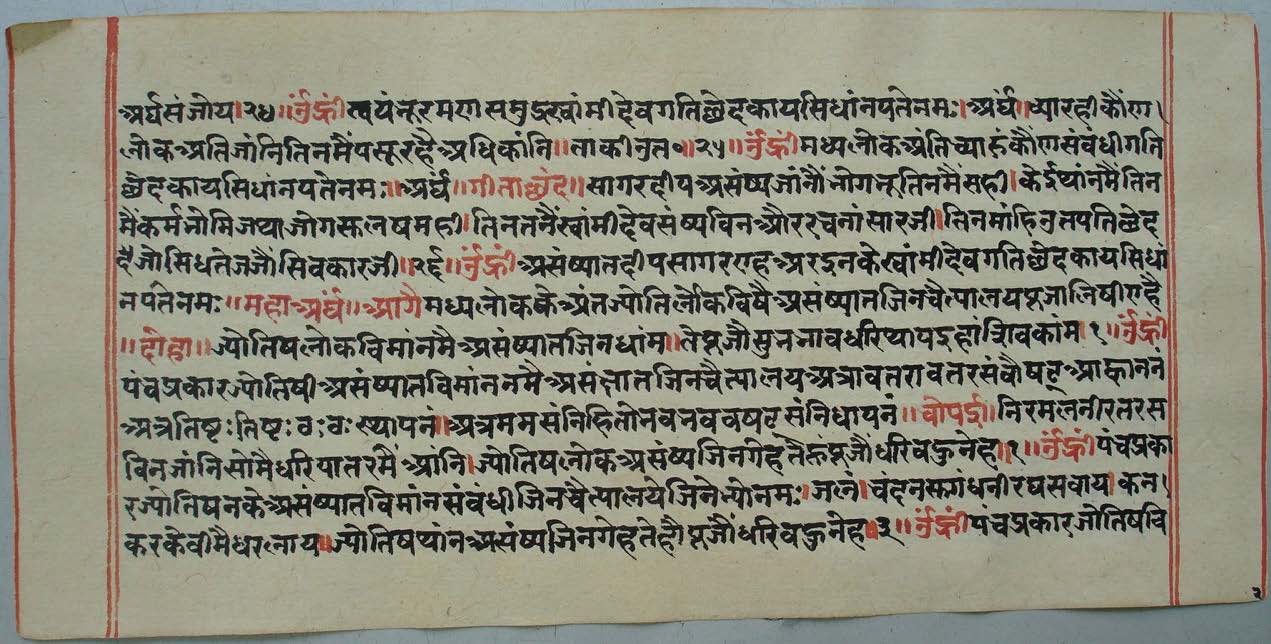 अर्घसंजोय।२४॥ ॐह्रीं त्वयंभूरमणसमुद्रस्वांमीदेवगतिछेदकायसिधांनपतेनमः।अर्घं॥ च्यारहीकौंण।
लोकअतिजांनितिनमैंपसूरहैअधिकांनि॥ ताकीनुत०॥२५॥ ॐह्रीं मध्यलोकअंतिच्यारूंकौंणसंबंधीगति
छेदकायसिधांनपतेनमः॥अर्घं॥गीताछंद॥ सागरदीपअसंष्यजांनौंभोगभूतिनमैंसही।केईथांनमैंतिन
मैंकर्मभोमिजथाजोगसकलषमही।तिनतनैंस्वांमीदेवसंष्यविनऔररचनांसारजी।तिनमांहिनुतपतिछेद
दैजोसिधतेजजौंसिवकारजी॥२६॥ ॐह्रीं असंष्यातदीपसागरएहअरइनकेस्वांमीदेवगतिछेदकायसिधां
नपतेनमः॥महाअर्घं॥आगै मध्यलोककेअंतज्योतिर्लोकविषैअसंष्यातजिनचैत्यालयपूजालिषीएहै
॥दोहा॥ ज्योतिषलोकविमांनमैअसंष्यातजिनधांम॥तेपूजौसुभभावधरिथापइहांसिवकांम१॥ ॐह्रीं
पंचप्रकारज्योतिषीअसंष्यातविमांननमैअसंख्यातजिनचैत्यालयअत्रावतरावतरसंवौषट्आह्वाननं
अत्रतिष्टःतिष्टःठःठःस्थापनं॥अत्रममसंनिहितोभवभववषटसंनिधापनं॥चौपई॥ निरमलनीरतरस
विनजांनिसोमैधरियातरमैंआंनि।ज्योतिषलोकअसंष्यजिनगेहतेहूंपूजौंधरिवहुनेह॥१॥ ॐह्रीं पंचप्रका
रज्योतिषनकेअसंष्यातविमांनसंबंधीजिनचैत्यालयेजिनेभ्योनमः।जलं।चंदनसुगंधनीरघसवाय।कन।
करकेवीमैधरलाय॥ज्योतिषथांनअसंष्यजिनगेहतेहौपूजौंधरिवहुनेह॥२॥ ॐह्रीं पंचप्रकारजोतिषवि
२